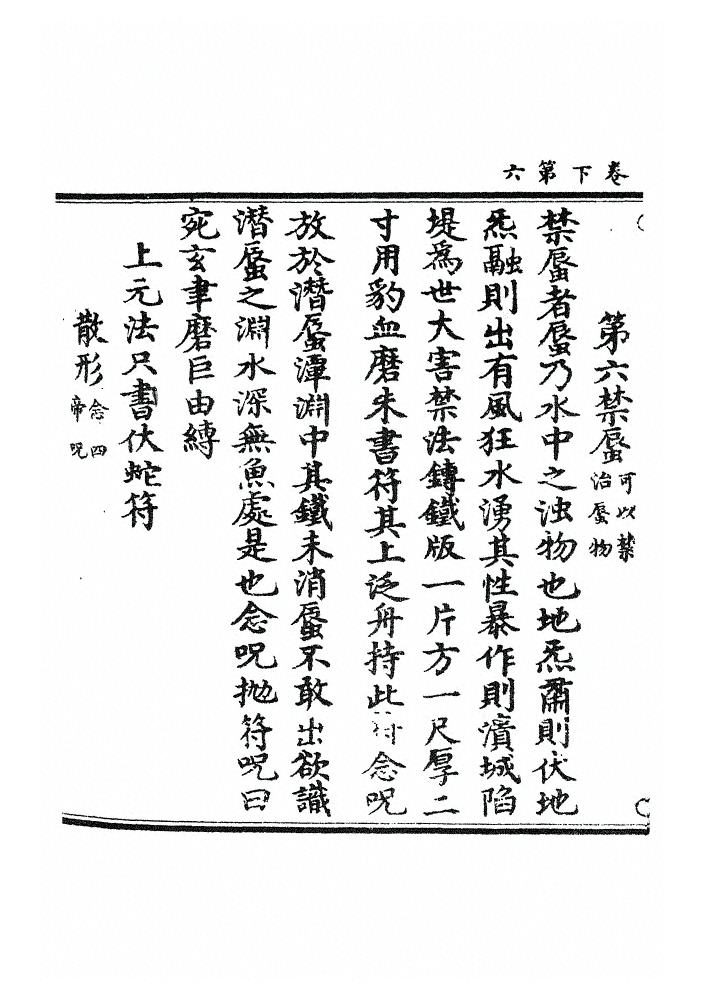 卷下第六
第六禁蜃可以禁治蜃物
禁蜃者蜃乃水中之浊物也地炁肅則伏地
炁融則出有風狂水湧其性暴作則潰城陷
堤爲世大害禁法鑄鐵版一片方一尺厚二
寸用豹血磨朱書符其上泛舟持此符念呪
放於潜蜃潭淵中其鐵未消蜃不敢出欲識
潜蜃之淵水深無魚處是也念呪抛符呪曰
宛玄聿磨巨由縛
上元法只書伏蛇符
散形念四帝呪